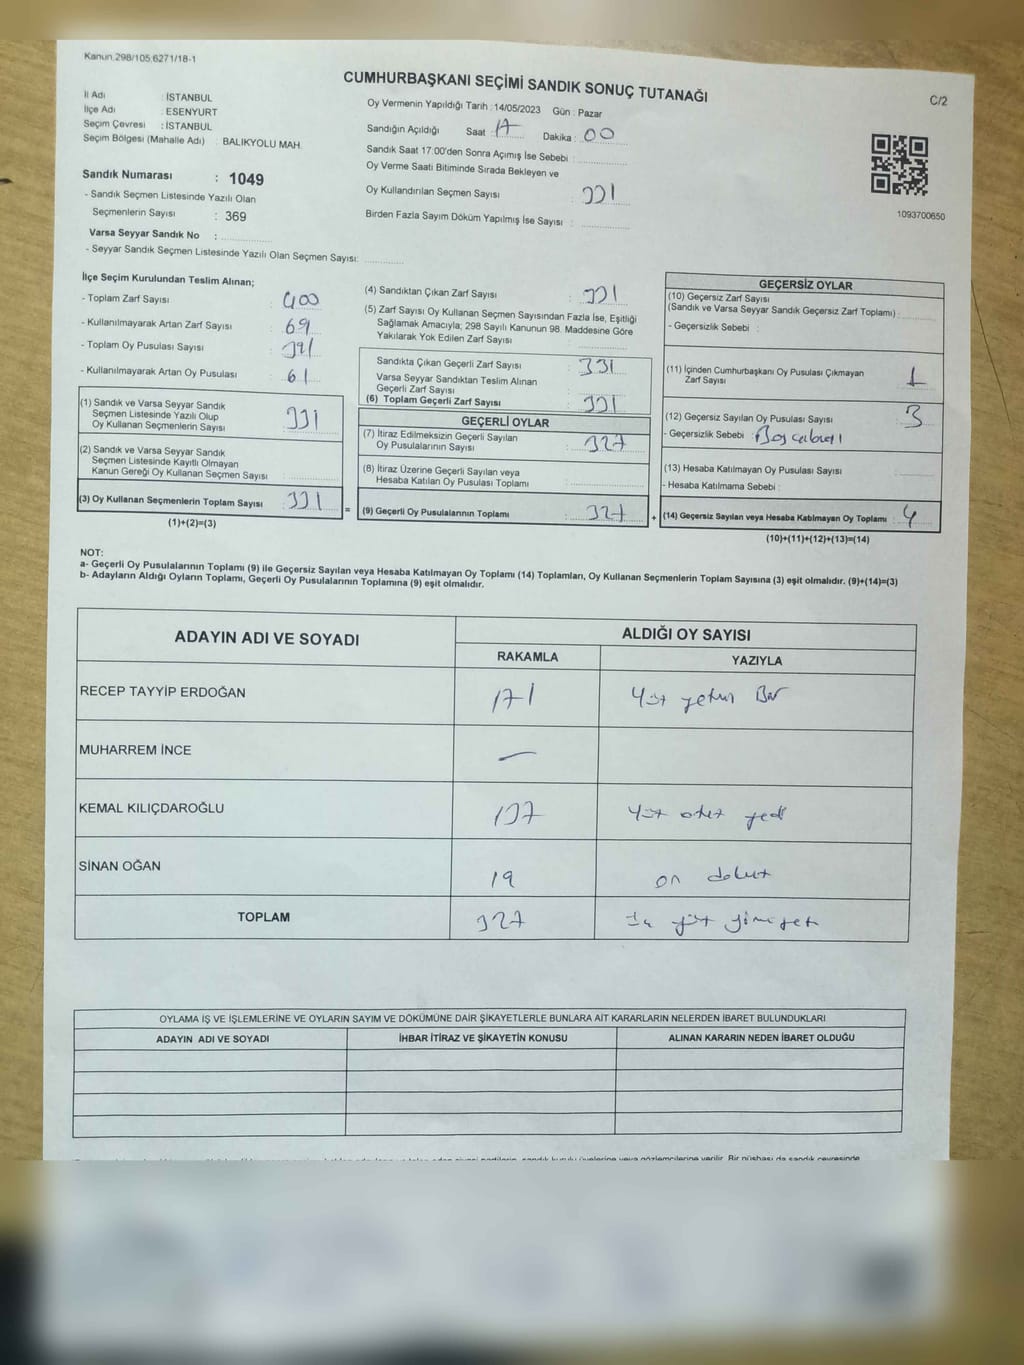 Kanun.298/105.6271/18-1
CUMHURBAŞKANI SEÇİMİ SANDIK SONUÇ TUTANAĞI
C/2
İl Adı : İSTANBUL
İlçe Adı : ESENYURT
Seçim Çevresi : İSTANBUL
Seçim Bölgesi (Mahalle Adı) : BALIKYOLU MAH.
Sandık Numarası : 1049
- Sandık Seçmen Listesinde Yazılı Olan
Seçmenlerin Sayısı : 369
Varsa Seyyar Sandık No :
- Seyyar Sandık Seçmen Listesinde Yazılı Olan Seçmen Sayısı:
Oy Vermenin Yapıldığı Tarih : 14/05/2023 Gün : Pazar
Sandığın Açıldığı Saat : 17 Dakika : 00
Sandık Saat 17:00'den Sonra Açımış İse Sebebi :
Oy Verme Saati Bitiminde Sırada Bekleyen ve
Oy Kullandırılan Seçmen Sayısı : 331
Birden Fazla Sayım Döküm Yapılmış İse Sayısı :
1093700650
İlçe Seçim Kurulundan Teslim Alınan;
- Toplam Zarf Sayısı : 400
- Kullanılmayarak Artan Zarf Sayısı : 69
- Toplam Oy Pusulası Sayısı : 391
- Kullanılmayarak Artan Oy Pusulası : 61
(1) Sandık ve Varsa Seyyar Sandık
Seçmen Listesinde Yazılı Olup
Oy Kullanan Seçmenlerin Sayısı : 331
(2) Sandık ve Varsa Seyyar Sandık
Seçmen Listesinde Kayıtlı Olmayan
Kanun Gereği Oy Kullanan Seçmen Sayısı :
(3) Oy Kullanan Seçmenlerin Toplam Sayısı : 331
(1)+(2)=(3)
=
(4) Sandıktan Çıkan Zarf Sayısı : 331
(5) Zarf Sayısı Oy Kullanan Seçmen Sayısından Fazla İse, Eşitliği
Sağlamak Amacıyla; 298 Sayılı Kanunun 98. Maddesine Göre
Yakılarak Yok Edilen Zarf Sayısı :
Sandıkta Çıkan Geçerli Zarf Sayısı : 331
Varsa Seyyar Sandıktan Teslim Alınan
Geçerli Zarf Sayısı :
(6) Toplam Geçerli Zarf Sayısı : 331
GEÇERLİ OYLAR
(7) İtiraz Edilmeksizin Geçerli Sayılan
Oy Pusulalarının Sayısı : 327
(8) İtiraz Üzerine Geçerli Sayılan veya
Hesaba Katılan Oy Pusulası Toplamı :
(9) Geçerli Oy Pusulalarının Toplamı : 327
+
GEÇERSİZ OYLAR
(10) Geçersiz Zarf Sayısı
(Sandık ve Varsa Seyyar Sandık Geçersiz Zarf Toplamı) :
- Geçersizlik Sebebi :
(11) İçinden Cumhurbaşkanı Oy Pusulası Çıkmayan
Zarf Sayısı : 1
(12) Geçersiz Sayılan Oy Pusulası Sayısı : 3
- Geçersizlik Sebebi :
(13) Hesaba Katılmayan Oy Pusulası Sayısı :
- Hesaba Katılmama Sebebi :
(14) Geçersiz Sayılan veya Hesaba Katılmayan Oy Toplamı : 4
(10)+(11)+(12)+(13)=(14)
NOT:
a- Geçerli Oy Pusulalarının Toplamı (9) ile Geçersiz Sayılan veya Hesaba Katılmayan Oy Toplamı (14) Toplamları, Oy Kullanan Seçmenlerin Toplam Sayısına (3) eşit olmalıdır. (9)+(14)=(3)
b- Adayların Aldığı Oyların Toplamı, Geçerli Oy Pusulalarının Toplamına (9) eşit olmalıdır.
ADAYIN ADI VE SOYADI ALDIĞI OY SAYISI
RAKAMLA YAZIYLA
RECEP TAYYİP ERDOĞAN 171 Yüz yetmiş Bir
MUHARREM İNCE —
KEMAL KILIÇDAROĞLU 137 Yüz otuz yedi
SİNAN OĞAN 19 on dokuz
TOPLAM 327 üç yüz yirmi yedi
OYLAMA İŞ VE İŞLEMLERİNE VE OYLARIN SAYIM VE DÖKÜMÜNE DAİR ŞİKAYETLERLE BUNLARA AİT KARARLARIN NELERDEN İBARET BULUNDUKLARI
ADAYIN ADI VE SOYADI İHBAR İTİRAZ VE ŞİKAYETİN KONUSU ALINAN KARARIN NEDEN İBARET OLDUĞU